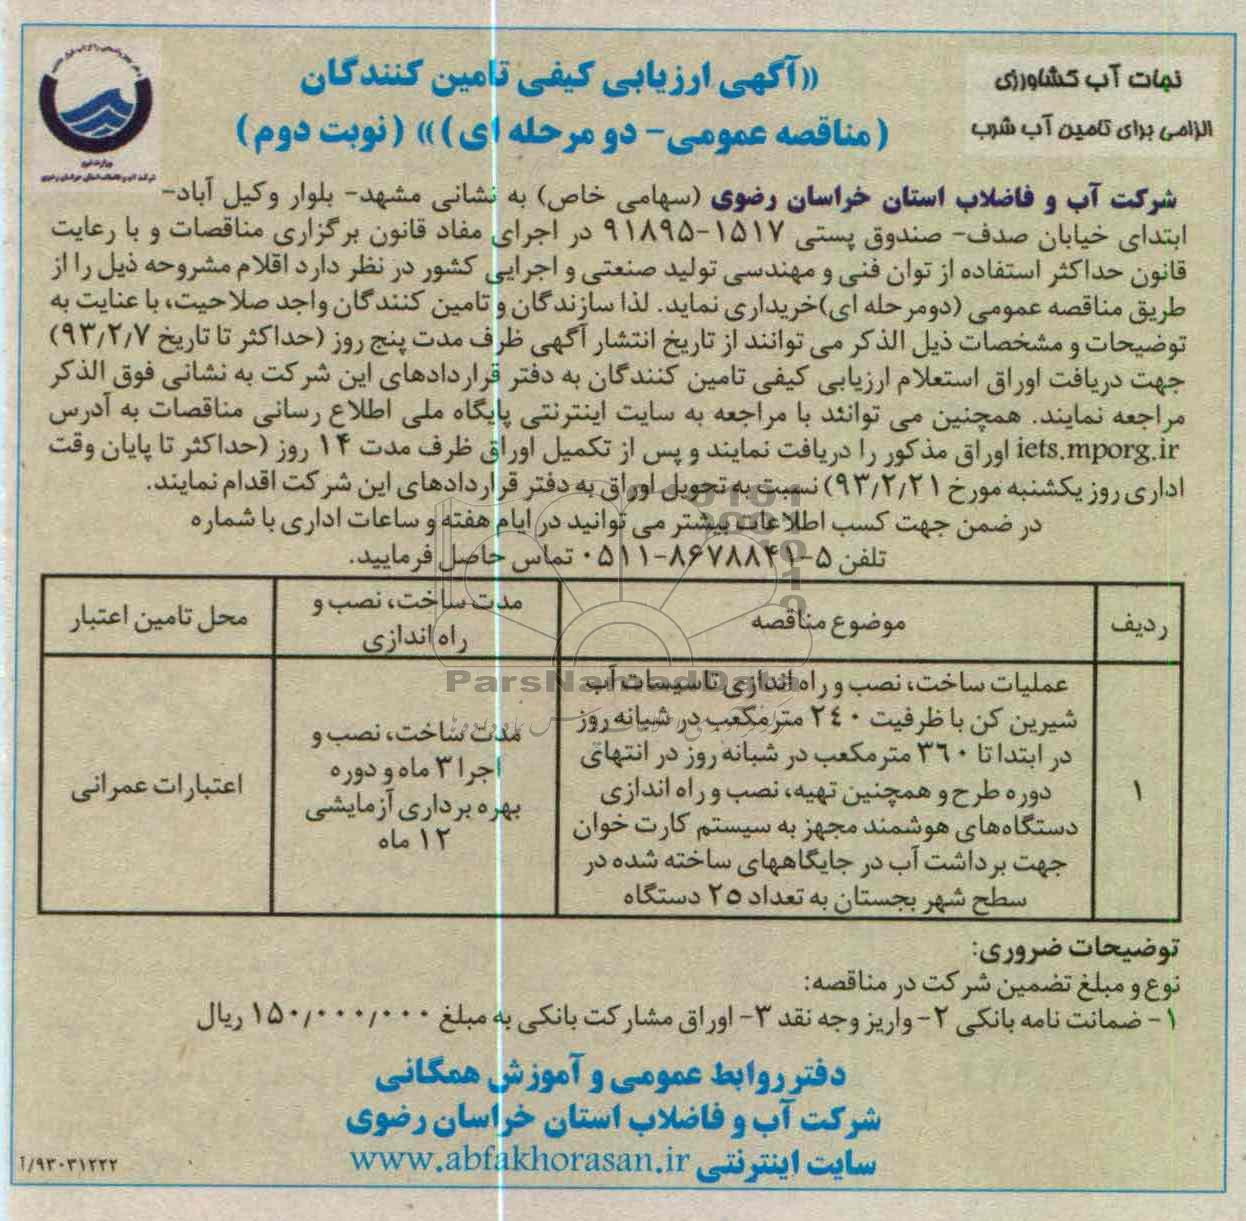 نجات آب کشاورزی
الزامی برای تامین آب شرب
((آگهی ارزیابی کیفی تامین کنندگان
(مناقصه عمومی- دو مرحله ای)) (نوبت دوم)
وزارت نیرو
شرکت آب و فاضلاب استان خراسان رضوی
شرکت آب و فاضلاب استان خراسان رضوی (سهامی خاص) به نشانی مشهد- بلوار وکیل آباد-
ابتدای خیابان صدف- صندوق پستی ۱۵۱۷-۹۱۸۹۵ در اجرای مفاد قانون برگزاری مناقصات و با رعایت
قانون حداکثر استفاده از توان فنی و مهندسی تولید صنعتی و اجرایی کشور در نظر دارد اقلام مشروحه ذیل را از
طریق مناقصه عمومی (دومرحله ای)خریداری نماید. لذا سازندگان و تامین کنندگان واجد صلاحیت، با عنایت به
توضیحات و مشخصات ذیل الذکر می توانند از تاریخ انتشار آگهی ظرف مدت پنج روز (حداکثر تا تاریخ ۹۳/۲/۷)
جهت دریافت اوراق استعلام ارزیابی کیفی تامین کنندگان به دفتر قراردادهای این شرکت به نشانی فوق الذکر
مراجعه نمایند. همچنین می توانند با مراجعه به سایت اینترنتی پایگاه ملی اطلاع رسانی مناقصات به آدرس
iets.mporg.ir اوراق مذکور را دریافت نمایند و پس از تکمیل اوراق ظرف مدت ۱۴ روز (حداکثر تا پایان وقت
اداری روز یکشنبه مورخ ۹۳/۲/۲۱) نسبت به تحویل اوراق به دفتر قراردادهای این شرکت اقدام نمایند.
در ضمن جهت کسب اطلاعات بیشتر می توانید در ایام هفته و ساعات اداری با شماره
تلفن ۵-۸۶۷۸۸۴۱-۰۵۱۱ تماس حاصل فرمایید.
ردیف
موضوع مناقصه
مدت ساخت، نصب و
راه اندازی
محل تامین اعتبار
۱
عملیات ساخت، نصب و راه اندازی تاسیسات آب
شیرین کن با ظرفیت ۲۴۰ مترمکعب در شبانه روز
در ابتدا تا ۳۶۰ مترمکعب در شبانه روز در انتهای
دوره طرح و همچنین تهیه، نصب و راه اندازی
دستگاه‌های هوشمند مجهز به سیستم کارت خوان
جهت برداشت آب در جایگاههای ساخته شده در
سطح شهر بجستان به تعداد ۲۵ دستگاه
مدت ساخت، نصب و
اجرا ۳ ماه و دوره
بهره برداری آزمایشی
۱۲ ماه
اعتبارات عمرانی
ParsNamadData
توضیحات ضروری:
نوع و مبلغ تضمین شرکت در مناقصه:
۱- ضمانت نامه بانکی ۲- واریز وجه نقد ۳- اوراق مشارکت بانکی به مبلغ ۱۵۰/۰۰۰/۰۰۰ ریال
دفتر روابط عمومی و آموزش همگانی
شرکت آب و فاضلاب استان خراسان رضوی
سایت اینترنتی www.abfakhorasan.ir
۹۳۰۳۱۲۲۲/آ